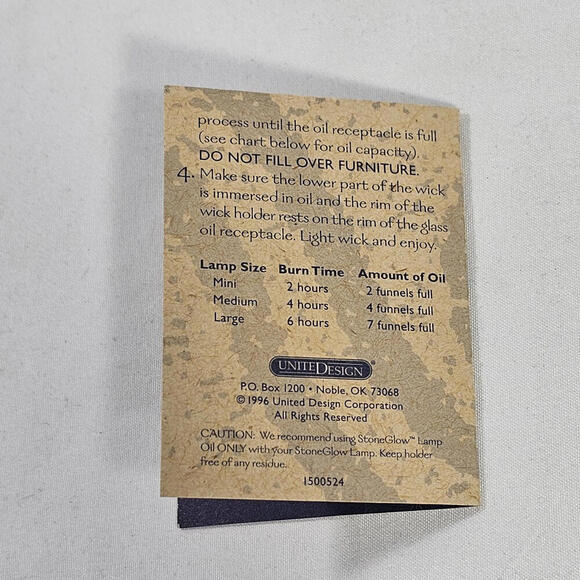 process until the oil receptacle is full
(see chart below for oil capacity).
DO NOT FILL OVER FURNITURE.
4. Make sure the lower part of the wick
is immersed in oil and the rim of the
wick holder rests on the rim of the glass
oil receptacle. Light wick and enjoy.
Lamp Size Burn Time Amount of Oil
Mini 2 hours 2 funnels full
Medium 4 hours 4 funnels full
Large 6 hours 7 funnels full
UNITEDESIGN®
P.O. Box 1200 • Noble, OK 73068
© 1996 United Design Corporation
All Rights Reserved
CAUTION: We recommend using StoneGlow™ Lamp
Oil ONLY with your StoneGlow Lamp. Keep holder
free of any residue.
1500524